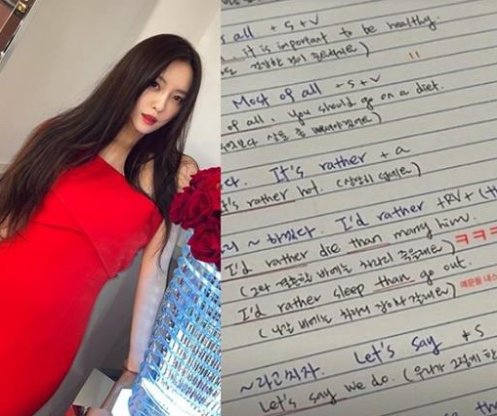 all + S + V
it is important to be healthy.
Most of all + S + V
of all, you should go on a diet.
다. It's rather + a
It's rather hot. (상당히 덥네요)
~ 하겠다. I'd rather + RV + (th
I'd rather die than marry him.
(그와 결혼할 바에는 차라리 죽을래요) ㅋㅋㅋ
I'd rather sleep than go out.
(나갈 바에는 차라리 잠이나 잘래요) 예문들 내스
~라고 치자. Let's say + S
Let's say we do. (우리가 그렇게 한